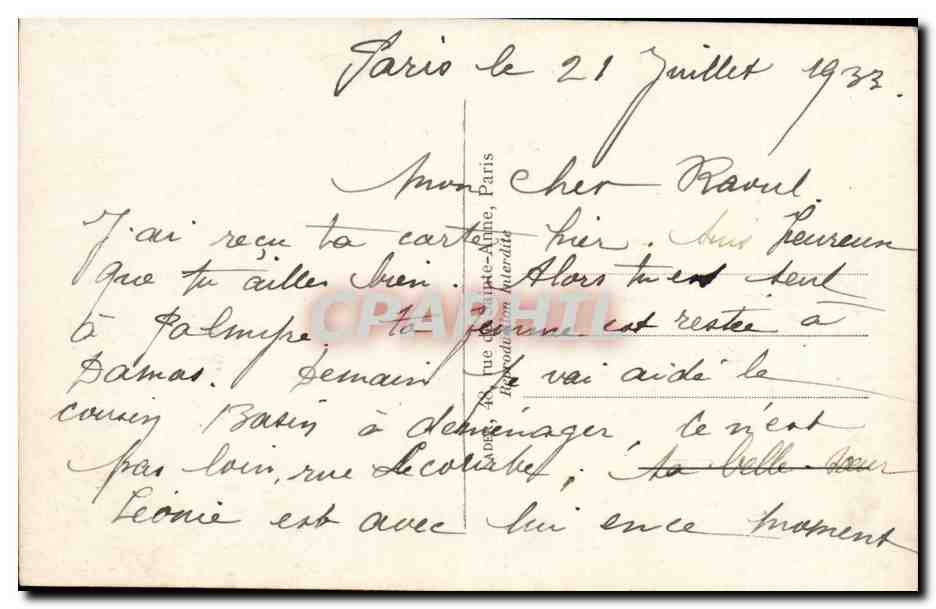 Paris le 21 Juillet 1933.
Mon cher Raoul
J'ai reçu ta carte hier. Suis heureux
que tu ailles bien. Alors tu es seul
à Palmyre. ta femme est restée à
Damas. Demain je vai aidé le
cousin Basin à déménager, ce n'est
pas loin, rue Lecourbe, sa belle-soeur
Léonie est avec lui en ce moment
rue Sainte-Anne, Paris
Reproduction Interdite
CPAPHIL